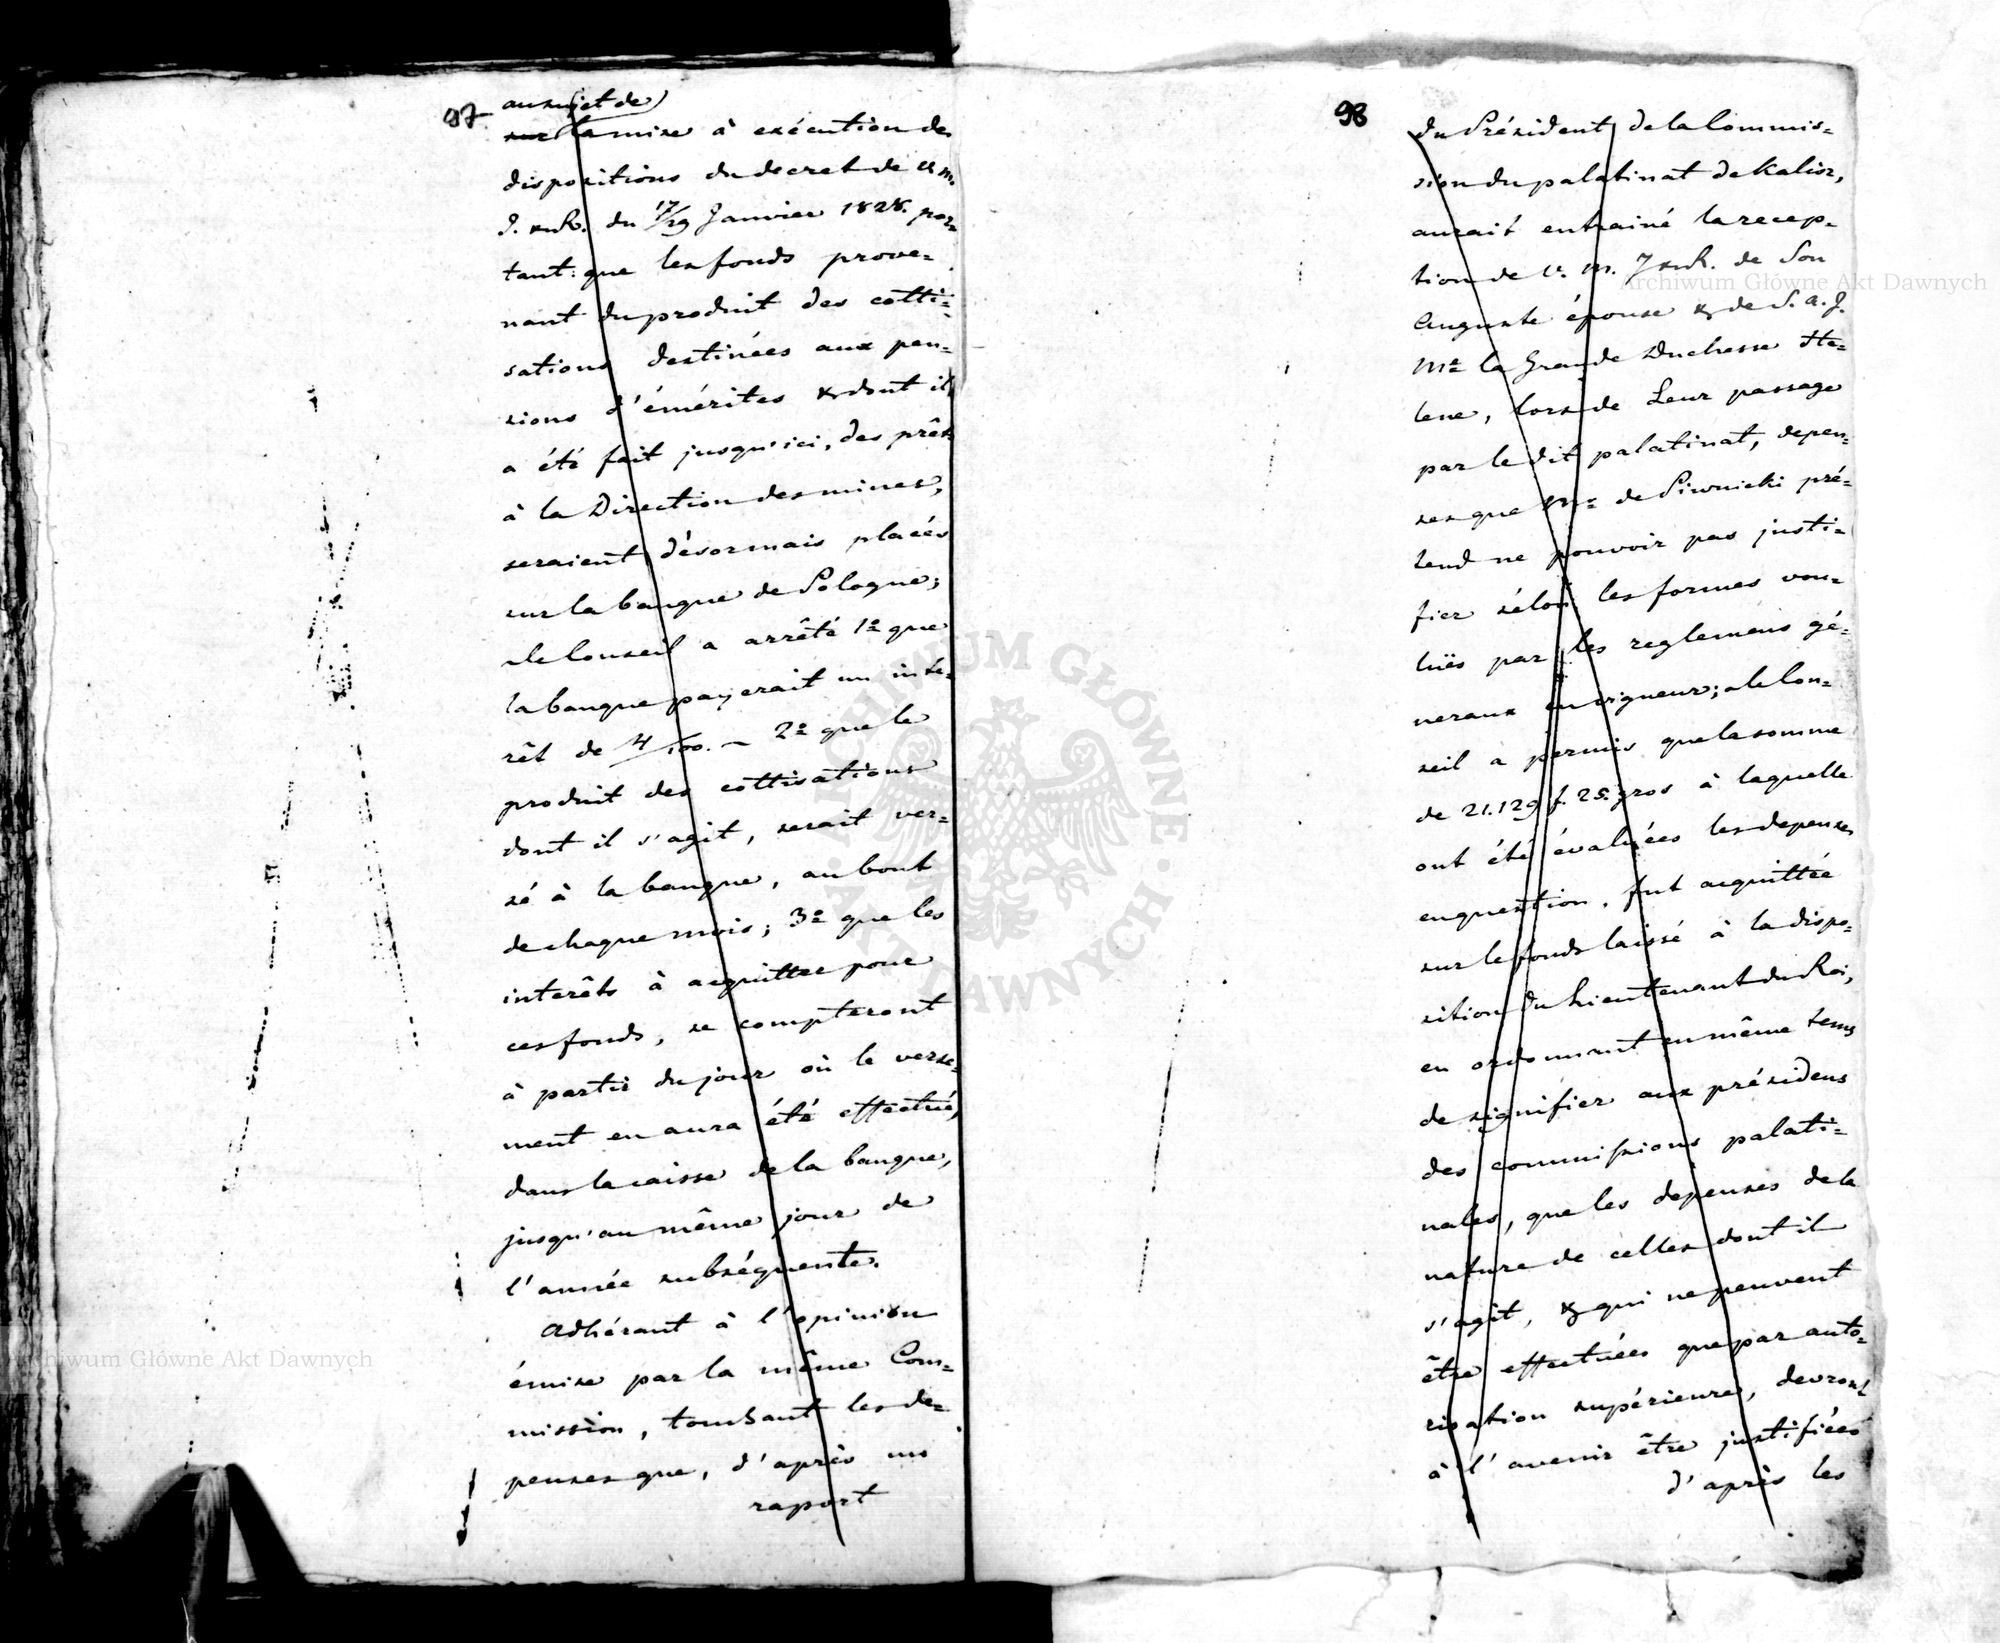 97
au sujet de
sur la mise à exécution des
dispositions du decret de V. M.
I. & R. du 17/29 Janvier 1828. por=
tant: que les fonds prove=
nant du produit des cotti=
sations destinées aux pen=
sions d'émérites & dont il
a été fait jusqu'ici, des prêts
à la Direction des mines,
seraient désormais placés
sur la banque de Pologne;
le Conseil a arrêté 1º que
la banque payerait un inté=
rêt de 4/100. — 2º que le
produit des cottisations
dont il s'agit, serait ver=
sé à la banque, au bout
de chaque mois; 3º que les
interêts à acquitter pour
ces fonds, se compteront
à partir du jour où le verse=
ment en aura été effectué,
dans la caisse de la banque,
jusqu'au même jour de
l'année subséquente.
Adhérant à l'opinion
émise par la même Com=
mission, touchant les de=
penses que, d'après un
raport
98
du Président de la Commis=
sion du palatinat de Kalisz,
aurait entrainé la recep=
tion de V. M. I & R. de Son
Auguste épouse & de S. A. I.
Me la Grande Duchesse He=
lene, lors de Leur passage
par le dit palatinat, depen=
ses que Mr de Piwnicki pré=
tend ne pouvoir pas justi=
fier sélon les formes vou=
lües par les reglemens gé=
neraux en vigueur; le Con=
seil a permis que la somme
de 21.129 f. 25. gros à laquelle
ont été évaluées les depenses
en question, fut acquittée
sur le fonds laissé à la dispo=
sition du Lieutenant du Roi,
en ordonnant en même tems
de signifier aux présidens
des commissions palati=
nales, que les depenses de la
nature de celles dont il
s'agit, & qui ne peuvent
être effectuées que par auto=
risation supérieure, devront
à l'avenir être justifiées
d'après les
Archiwum Główne Akt Dawnych
Archiwum Główne Akt Dawnych
ARCHIWUM GŁÓWNE · AKT DAWNYCH ·